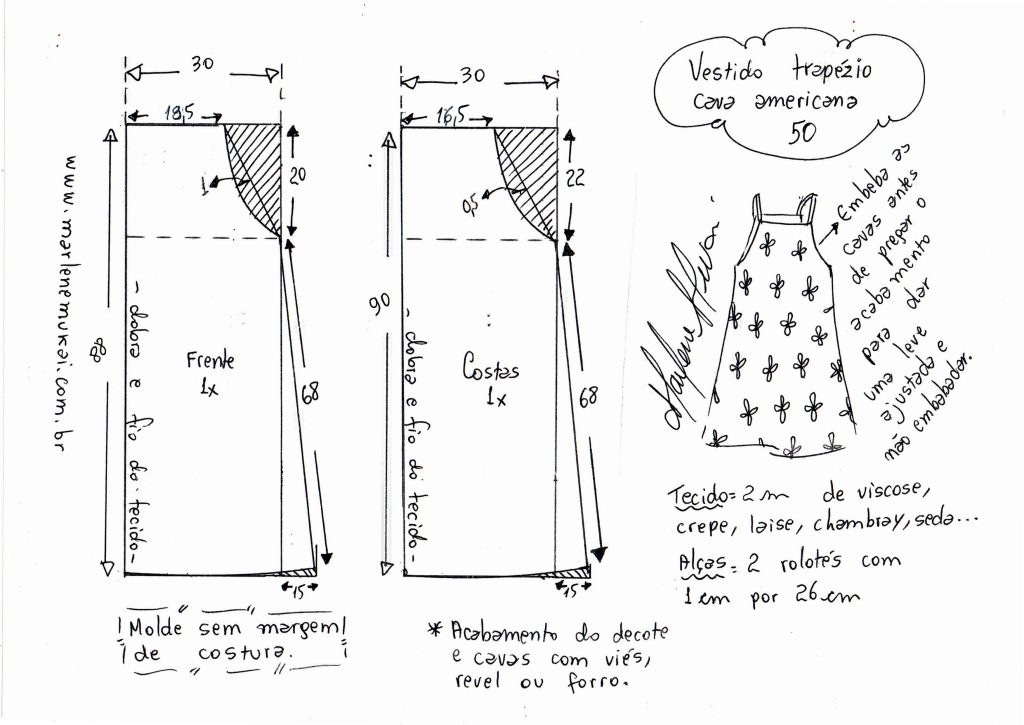 30
18,5
1
20
www.marlenemukai.com.br
88
- dobra e fio do tecido -
Frente
1x
68
15
Molde sem margem
de costura.
30
16,5
0,5
22
90
- dobra e fio do tecido -
Costas
1x
68
15
* Acabamento do decote
e cavas com viés,
revel ou forro.
Vestido trapézio
cava americana
50
Embeba as
cavas antes
de pregar o
acabamento
para dar
uma leve
ajustada e
não embabadar.
Marlene Mukai
Tecido = 2 m de viscose,
crepe, laise, chambray, seda...
Alças = 2 rolotés com
1 cm por 26 cm